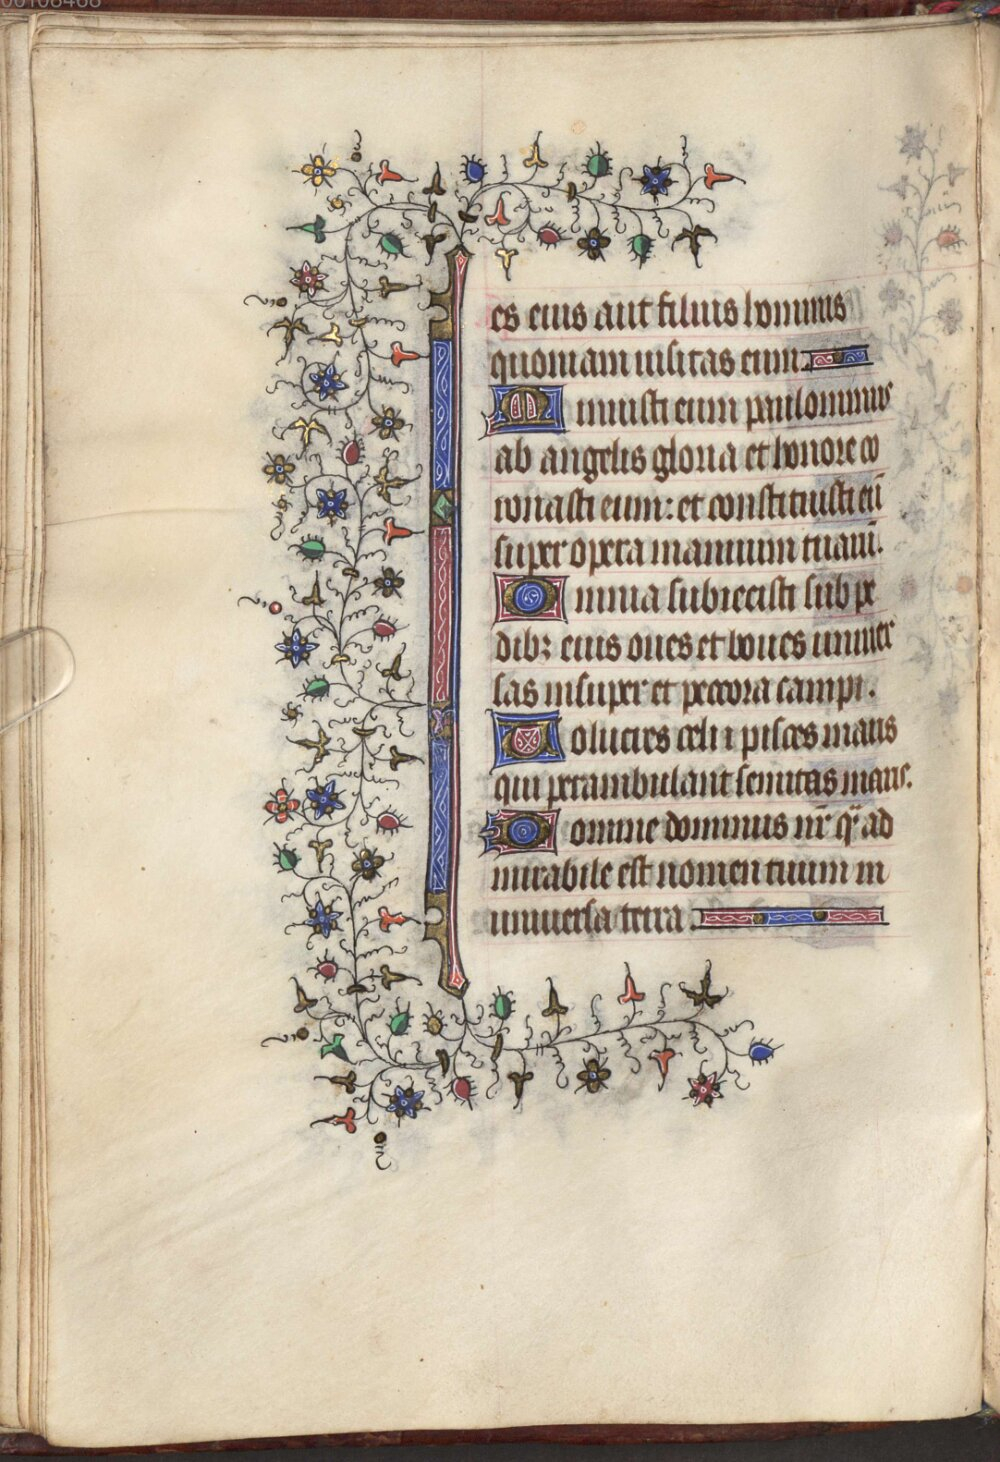 es eius aut filius hominis
quoniam uisitas eum
Minuisti eum paulominus
ab angelis gloria et honore co
ronasti eum: et constituisti eū
super opera manuum tuarū.
Omnia subiecisti sub pe
dibꝫ eius oues et boues uniuer
sas insuper et peccora campi.
Volucres celi ⁊ pisces maris
qui perambulant semitas maris.
Domine dominus nr̄ qͣ ad
mirabile est nomen tuum in
uniuersa terra.